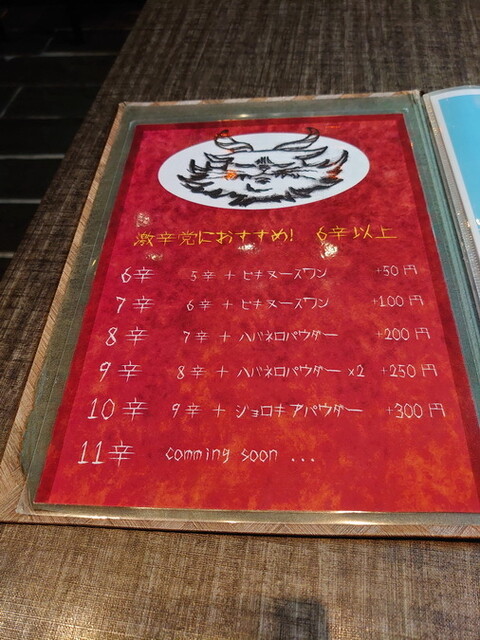 激辛党におすすめ! 6辛以上
6辛 5辛 + ピキヌースワン +50円
7辛 6辛 + ピキヌースワン +100円
8辛 7辛 + ハバネロパウダー +200円
9辛 8辛 + ハバネロパウダー ×2 +250円
10辛 9辛 + ジョロキアパウダー +300円
11辛 comming soon ...